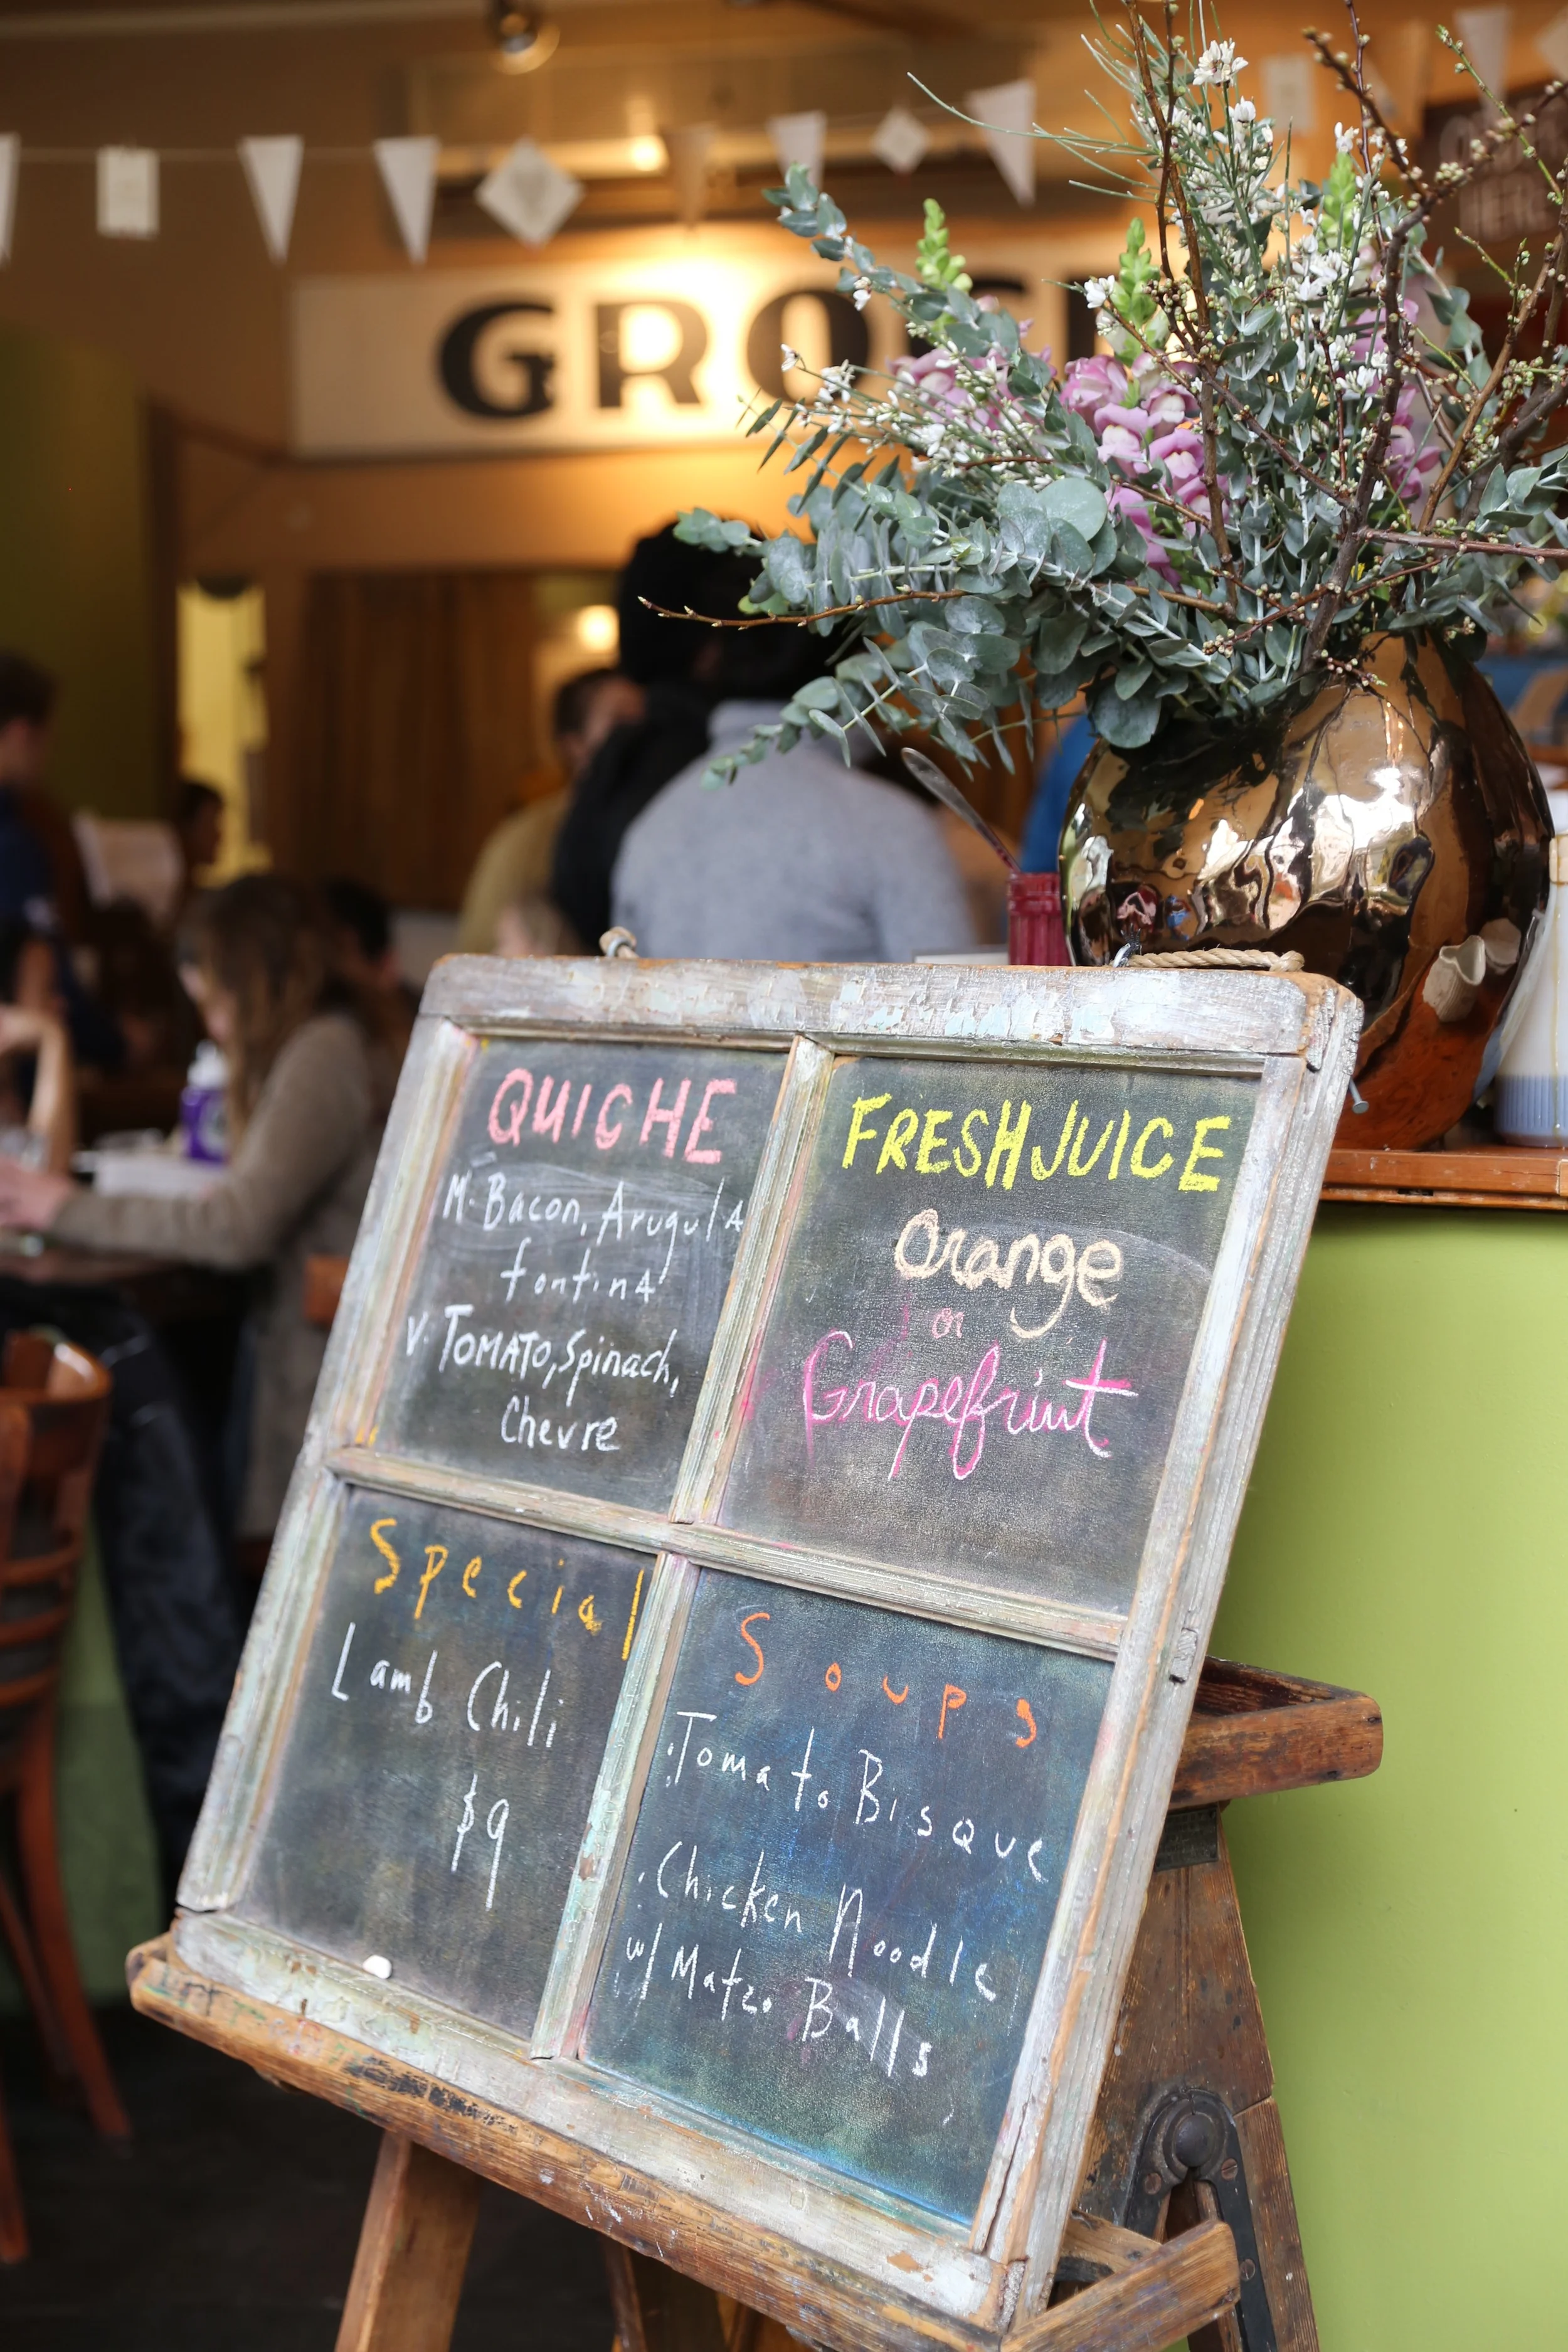 GROC
QUICHE
M. Bacon, Arugula
fontina
V. TOMATO, Spinach,
Chevre
FRESH JUICE
Orange
or
Grapefruit
Special
Lamb Chili
$9
Soups
. Tomato Bisque
. Chicken Noodle
w/ Matzo Balls